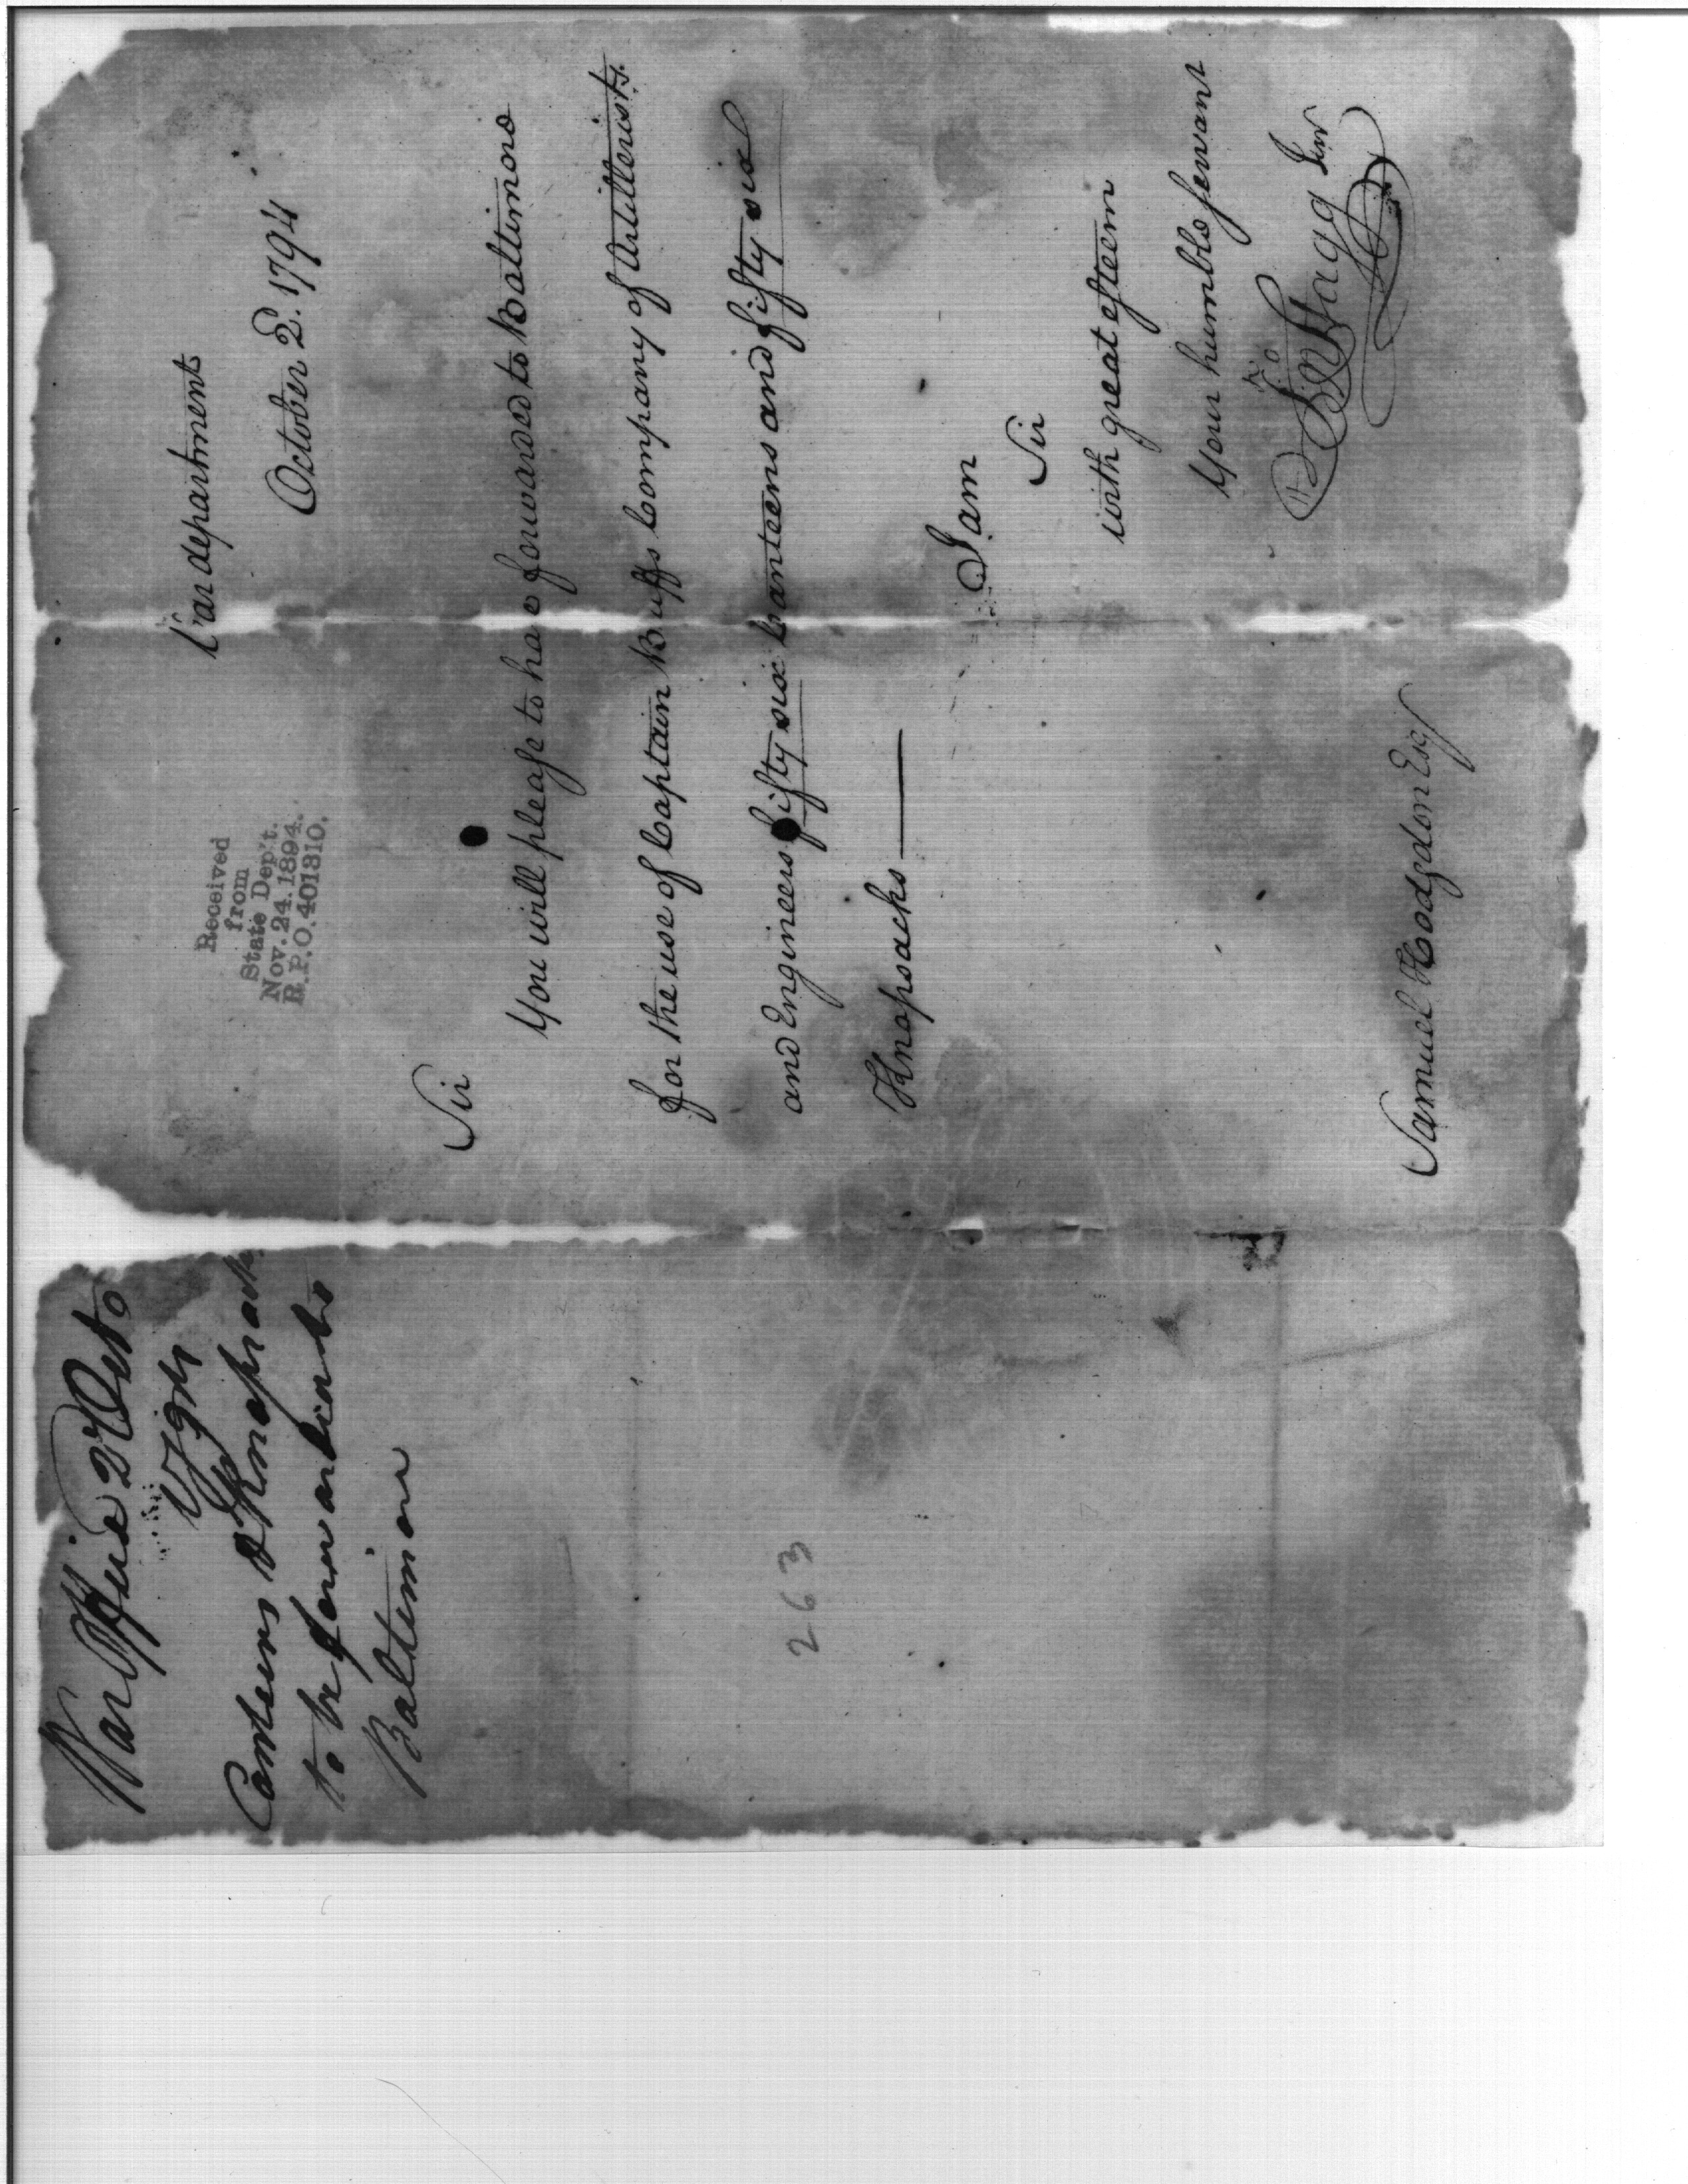 War department
October 2. 1794
Received
from
State Dep't.
Nov. 24. 1894.
R.P.O. 401810.
Sir
You will please to have forwarded to Baltimore
for the use of Captain Ruffs Company of Artillerists
and Engineers fifty six Canteens and fifty six
Knapsacks
I am
Sir
with great esteem
Your humble servant
Jno Stagg Junr
Samuel Hodgdon Esqr
War Office 2d Octo
1794
Canteens & Knapsacks
to be forwarded to
Baltimore
263